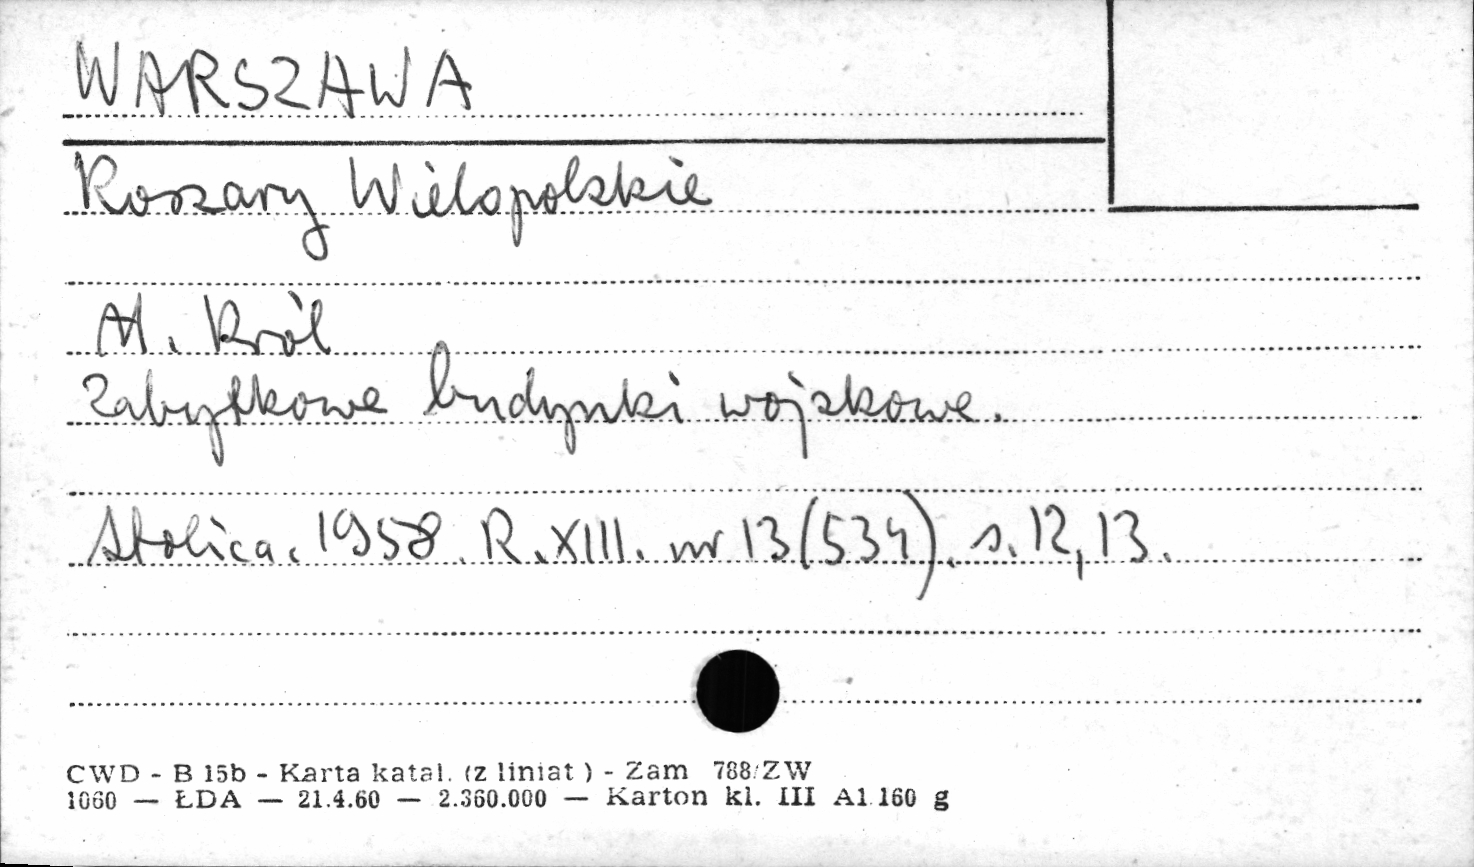 WARSZAWA
Koszary Wielopolskie
A. Król
Zabytkowe budynki wojskowe.
Stolica. 1958. R. XIII. nr 13 (534). s. 12, 13.
CWD - B 15b - Karta katal. (z liniat ) - Zam 788/ZW
1060 — ŁDA — 21.4.60 — 2.360.000 — Karton kl. III A1 160 g